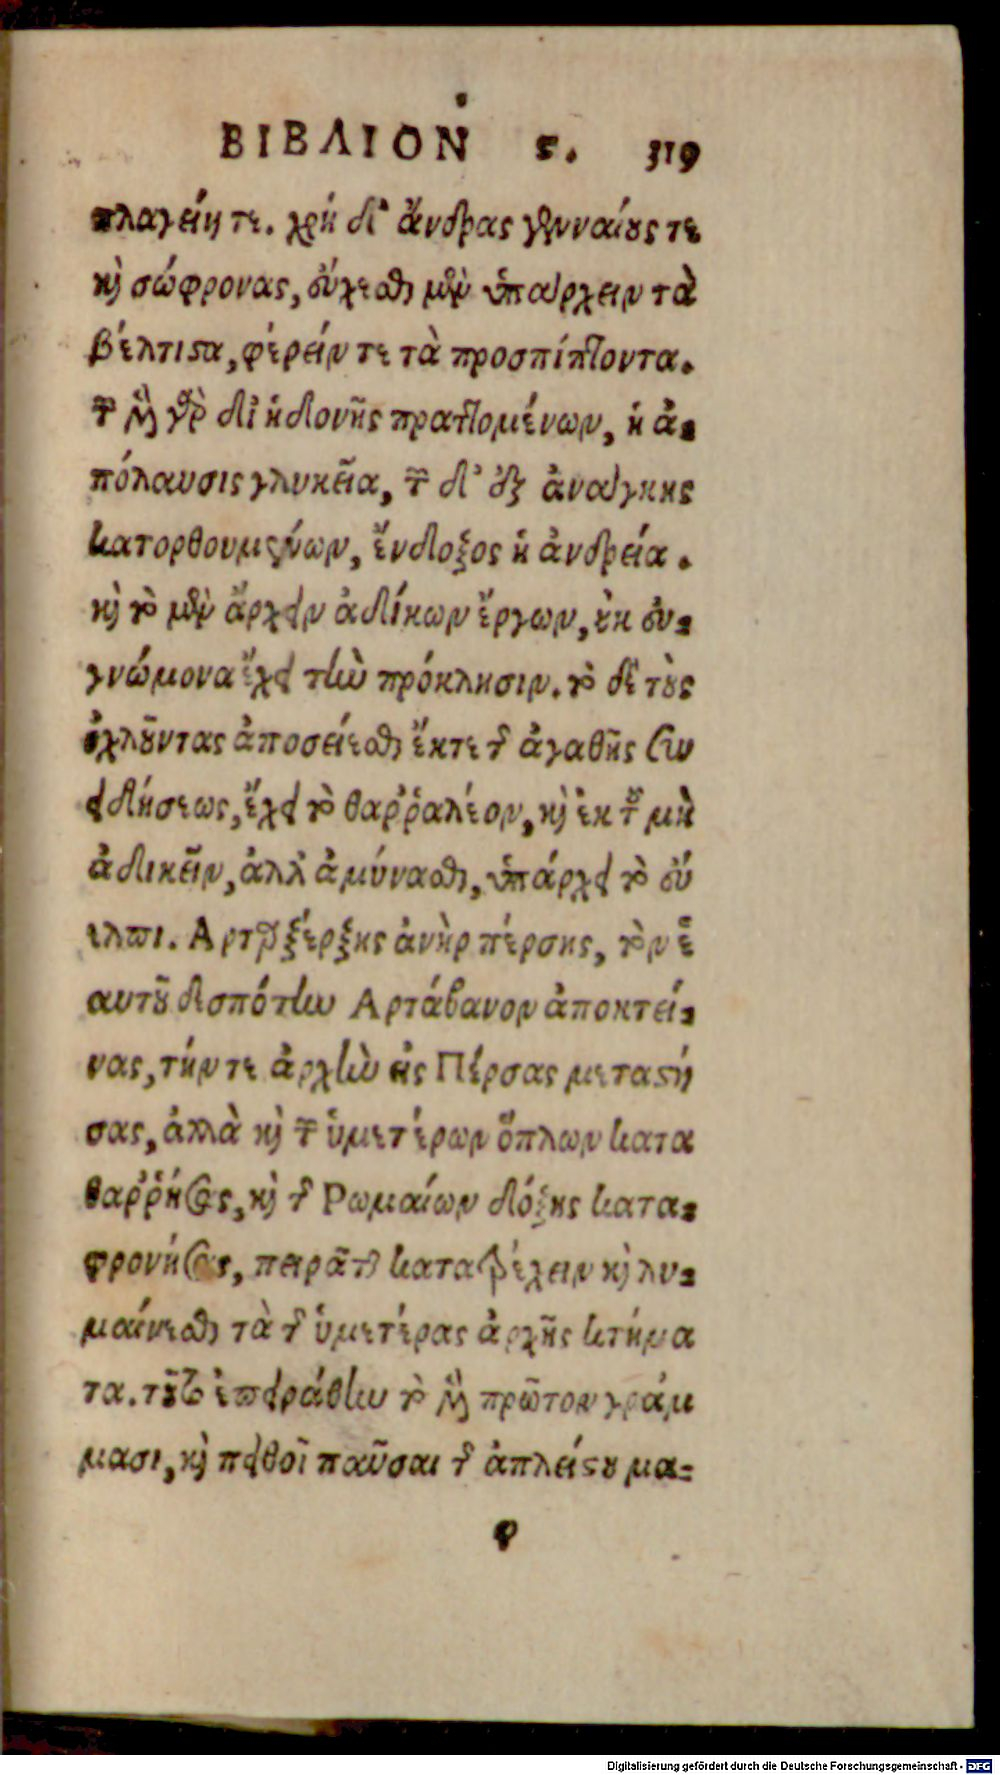 ΒΙΒΛΙΟΝ ϛ. 319
πλαγείη τε. χρὴ δὲ ἄνδρας γενναίους τε
καὶ σώφρονας, εὔχεσθαι μὲν ὑπάρχειν τὰ
βέλτιστα, φέρειν τε τὰ προσπίπτοντα.
τῶν μὲν γὰρ δι' ἡδονῆς πραττομένων, ἡ ἀ-
πόλαυσις γλυκεῖα, τῶν δ' ἐξ ἀνάγκης
κατορθουμένων, ἔνδοξος ἡ ἀνδρεία.
καὶ τὸ μὲν ἄρχειν ἀδίκων ἔργων, ἐκ εὐ-
γνώμονα ἔχει τὴν πρόκλησιν. τὸ δὲ τοὺς
ὀχλοῦντας ἀποσείεσθαι ἔκ τε τῆς ἀγαθῆς συν
ειδήσεως, ἔχει τὸ θαῤῥαλέον, καὶ ἐκ τοῦ μὴ
ἀδικεῖν, ἀλλ' ἀμύνασθαι, ὑπάρχει τὸ εὔ
ελπι. Αρταξέρξης ἀνὴρ πέρσης, τὸν ἑ
αυτοῦ δεσπότην Αρτάβανον ἀποκτεί-
νας, τήν τε ἀρχὴν εἰς Πέρσας μεταστή
σας, ἀλλὰ καὶ τῶν ὑμετέρων ὅπλων κατα
θαῤῥήσας, καὶ τῆς Ρωμαίων δόξης κατα-
φρονήσας, πειρᾶται κατατρέχειν καὶ λυ-
μαίνεσθαι τὰ τῆς ὑμετέρας ἀρχῆς κτήμα
τα. τοῦτον ἐπειράθην τὸ μὲν πρῶτον γράμ
μασι, καὶ πειθοῖ παῦσαι τῆς ἀπλείστου μα-
φ
Digitalisierung gefördert durch die Deutsche Forschungsgemeinschaft - DFG